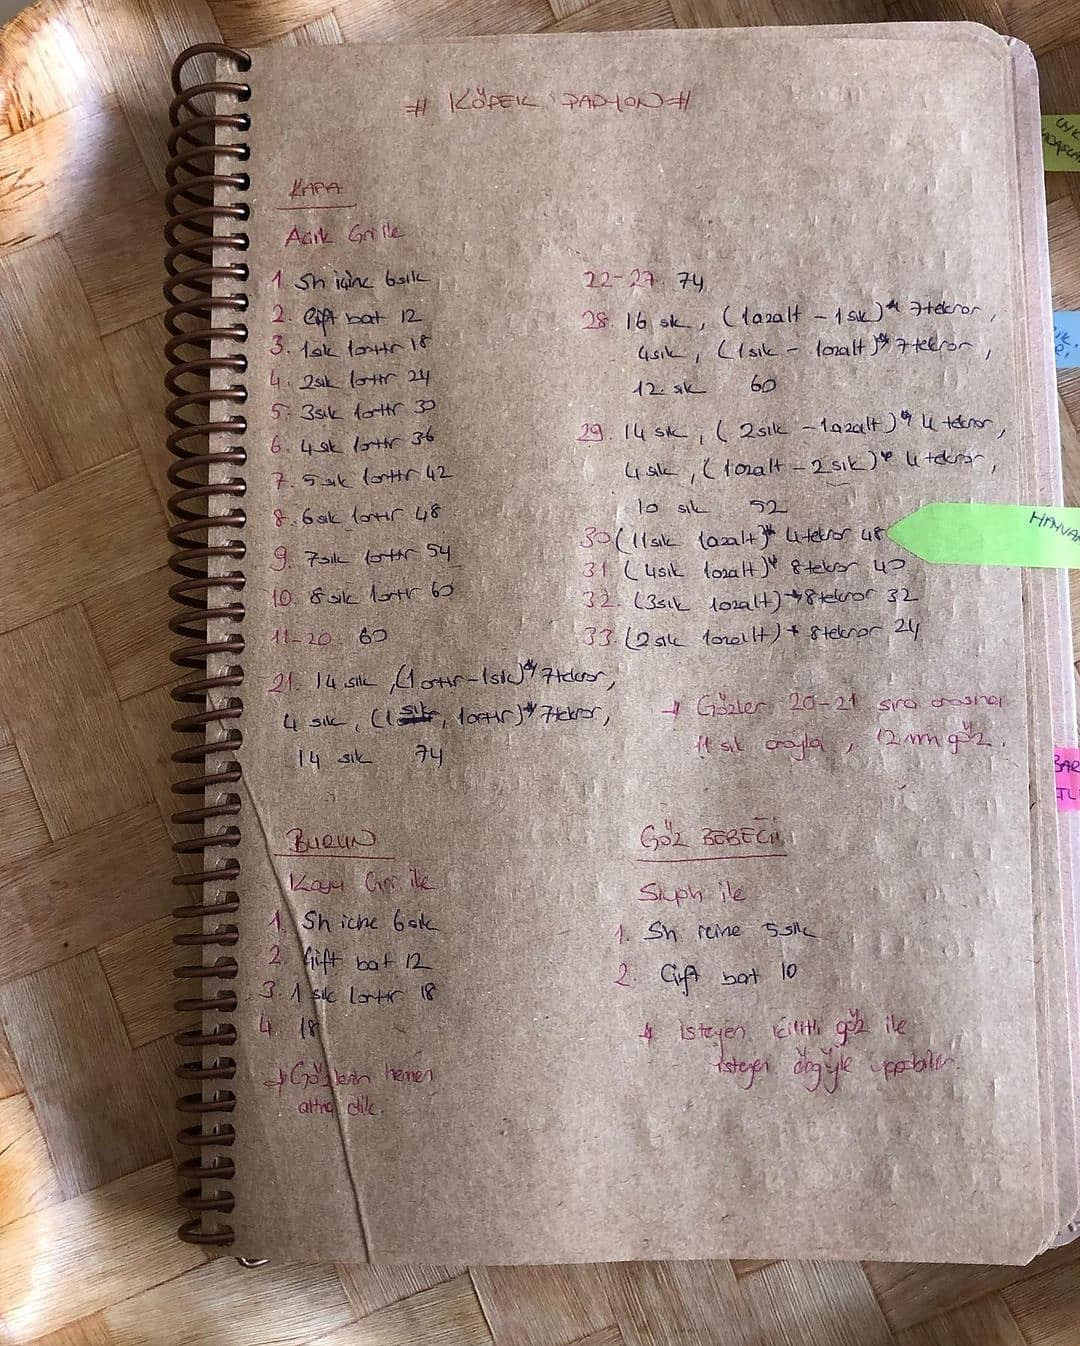 # KÖPEK PADYON #
KAFA
Açık Gri ile
1. Sh içine 6 sık
2. Çift bat 12
3. 1sık 1arttır 18
4. 2sık 1arttır 24
5. 3sık 1arttır 30
6. 4sık 1arttır 36
7. 5sık 1arttır 42
8. 6sık 1arttır 48
9. 7sık 1arttır 54
10. 8sık 1arttır 60
11-20. 60
21. 14 sık, (1arttır-1sık)* 7tekrar,
4 sık, (1sık, 1arttır)* 7tekrar,
14 sık 74
22-27. 74
28. 16 sk, (1azalt - 1sık)* 7tekrar,
4sık, (1sık - 1azalt)* 7tekrar,
12. sk 60
29. 14 sk, (2sık - 1azalt)* 4 tekrar,
4sık, (1azalt - 2sık)* 4 tekrar,
10 sık 52
30 (11sık 1azalt)* 4tekrar 48
31. (4sık 1azalt)* 8tekrar 40
32. (3sık 1azalt)* 8tekrar 32
33. (2sık 1azalt)* 8tekrar 24
Gözler 20-21 sıra arasına
11 sık arayla, 12mm göz.
BURUN
Koyu Gri ile
1. Sh içine 6sık
2. Çift bat 12
3. 1 sık 1arttır 18
4. 18
→ Gözlerin hemen
altına dik.
GÖZ BEBEĞİ
Siyah ile
1. Sh 5sık
2. Çift bat 10
* isteyen kilitli göz ile
isteyen örgüyle yapabilir.